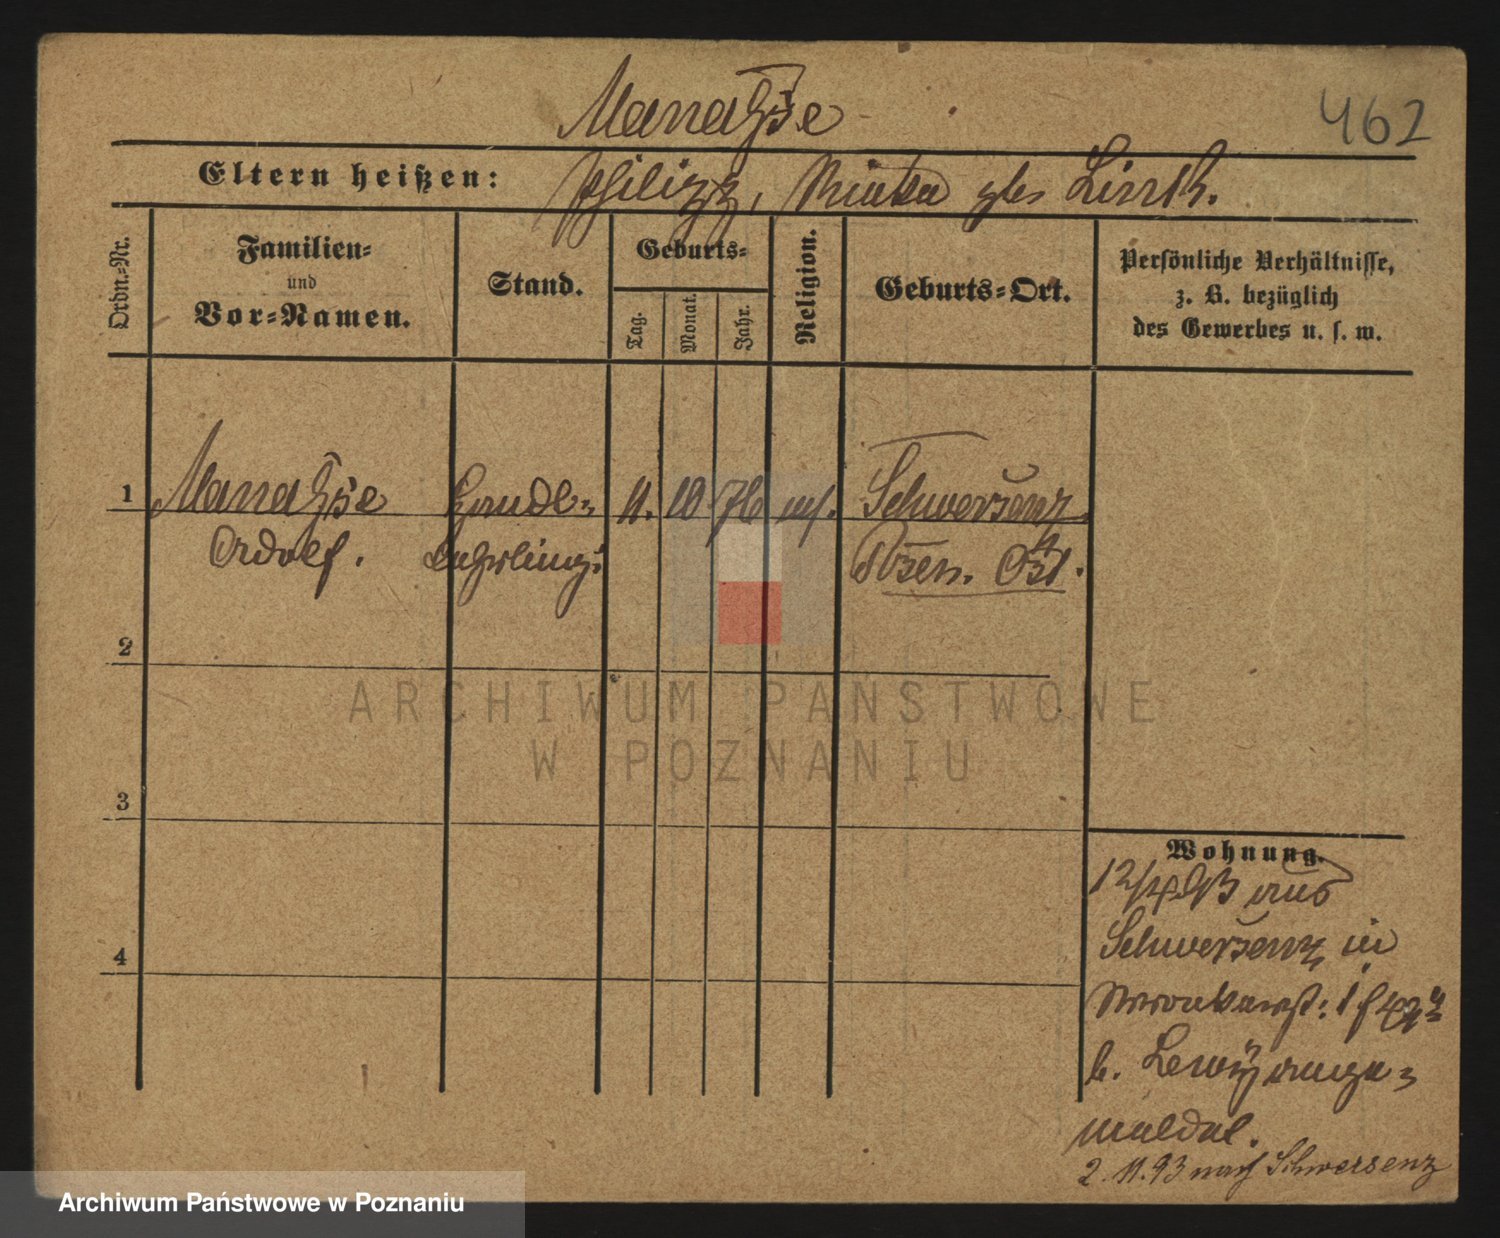 Manaßse
462
Eltern heißen: Philipp, geb.
Ordn.=Nr.
Familien=
und
Vor=Namen.
Stand.
Geburts=
Tag.
Monat.
Jahr.
Religion.
Geburts=Ort.
Persönliche Verhältnisse,
z. B. bezüglich
des Gewerbes u. s. w.
1 Manaßse Handl= 11. 10 76 Schwersenz
Adolf. Lehrling. Posen. Ost.
2
3
4
Wohnung.
12/4 93 aus
Schwersenz in
b. Lewy ange=
meldet.
2. 11. 93 nach Schwersenz
ARCHIWUM PAŃSTWOWE
W POZNANIU
Archiwum Państwowe w Poznaniu